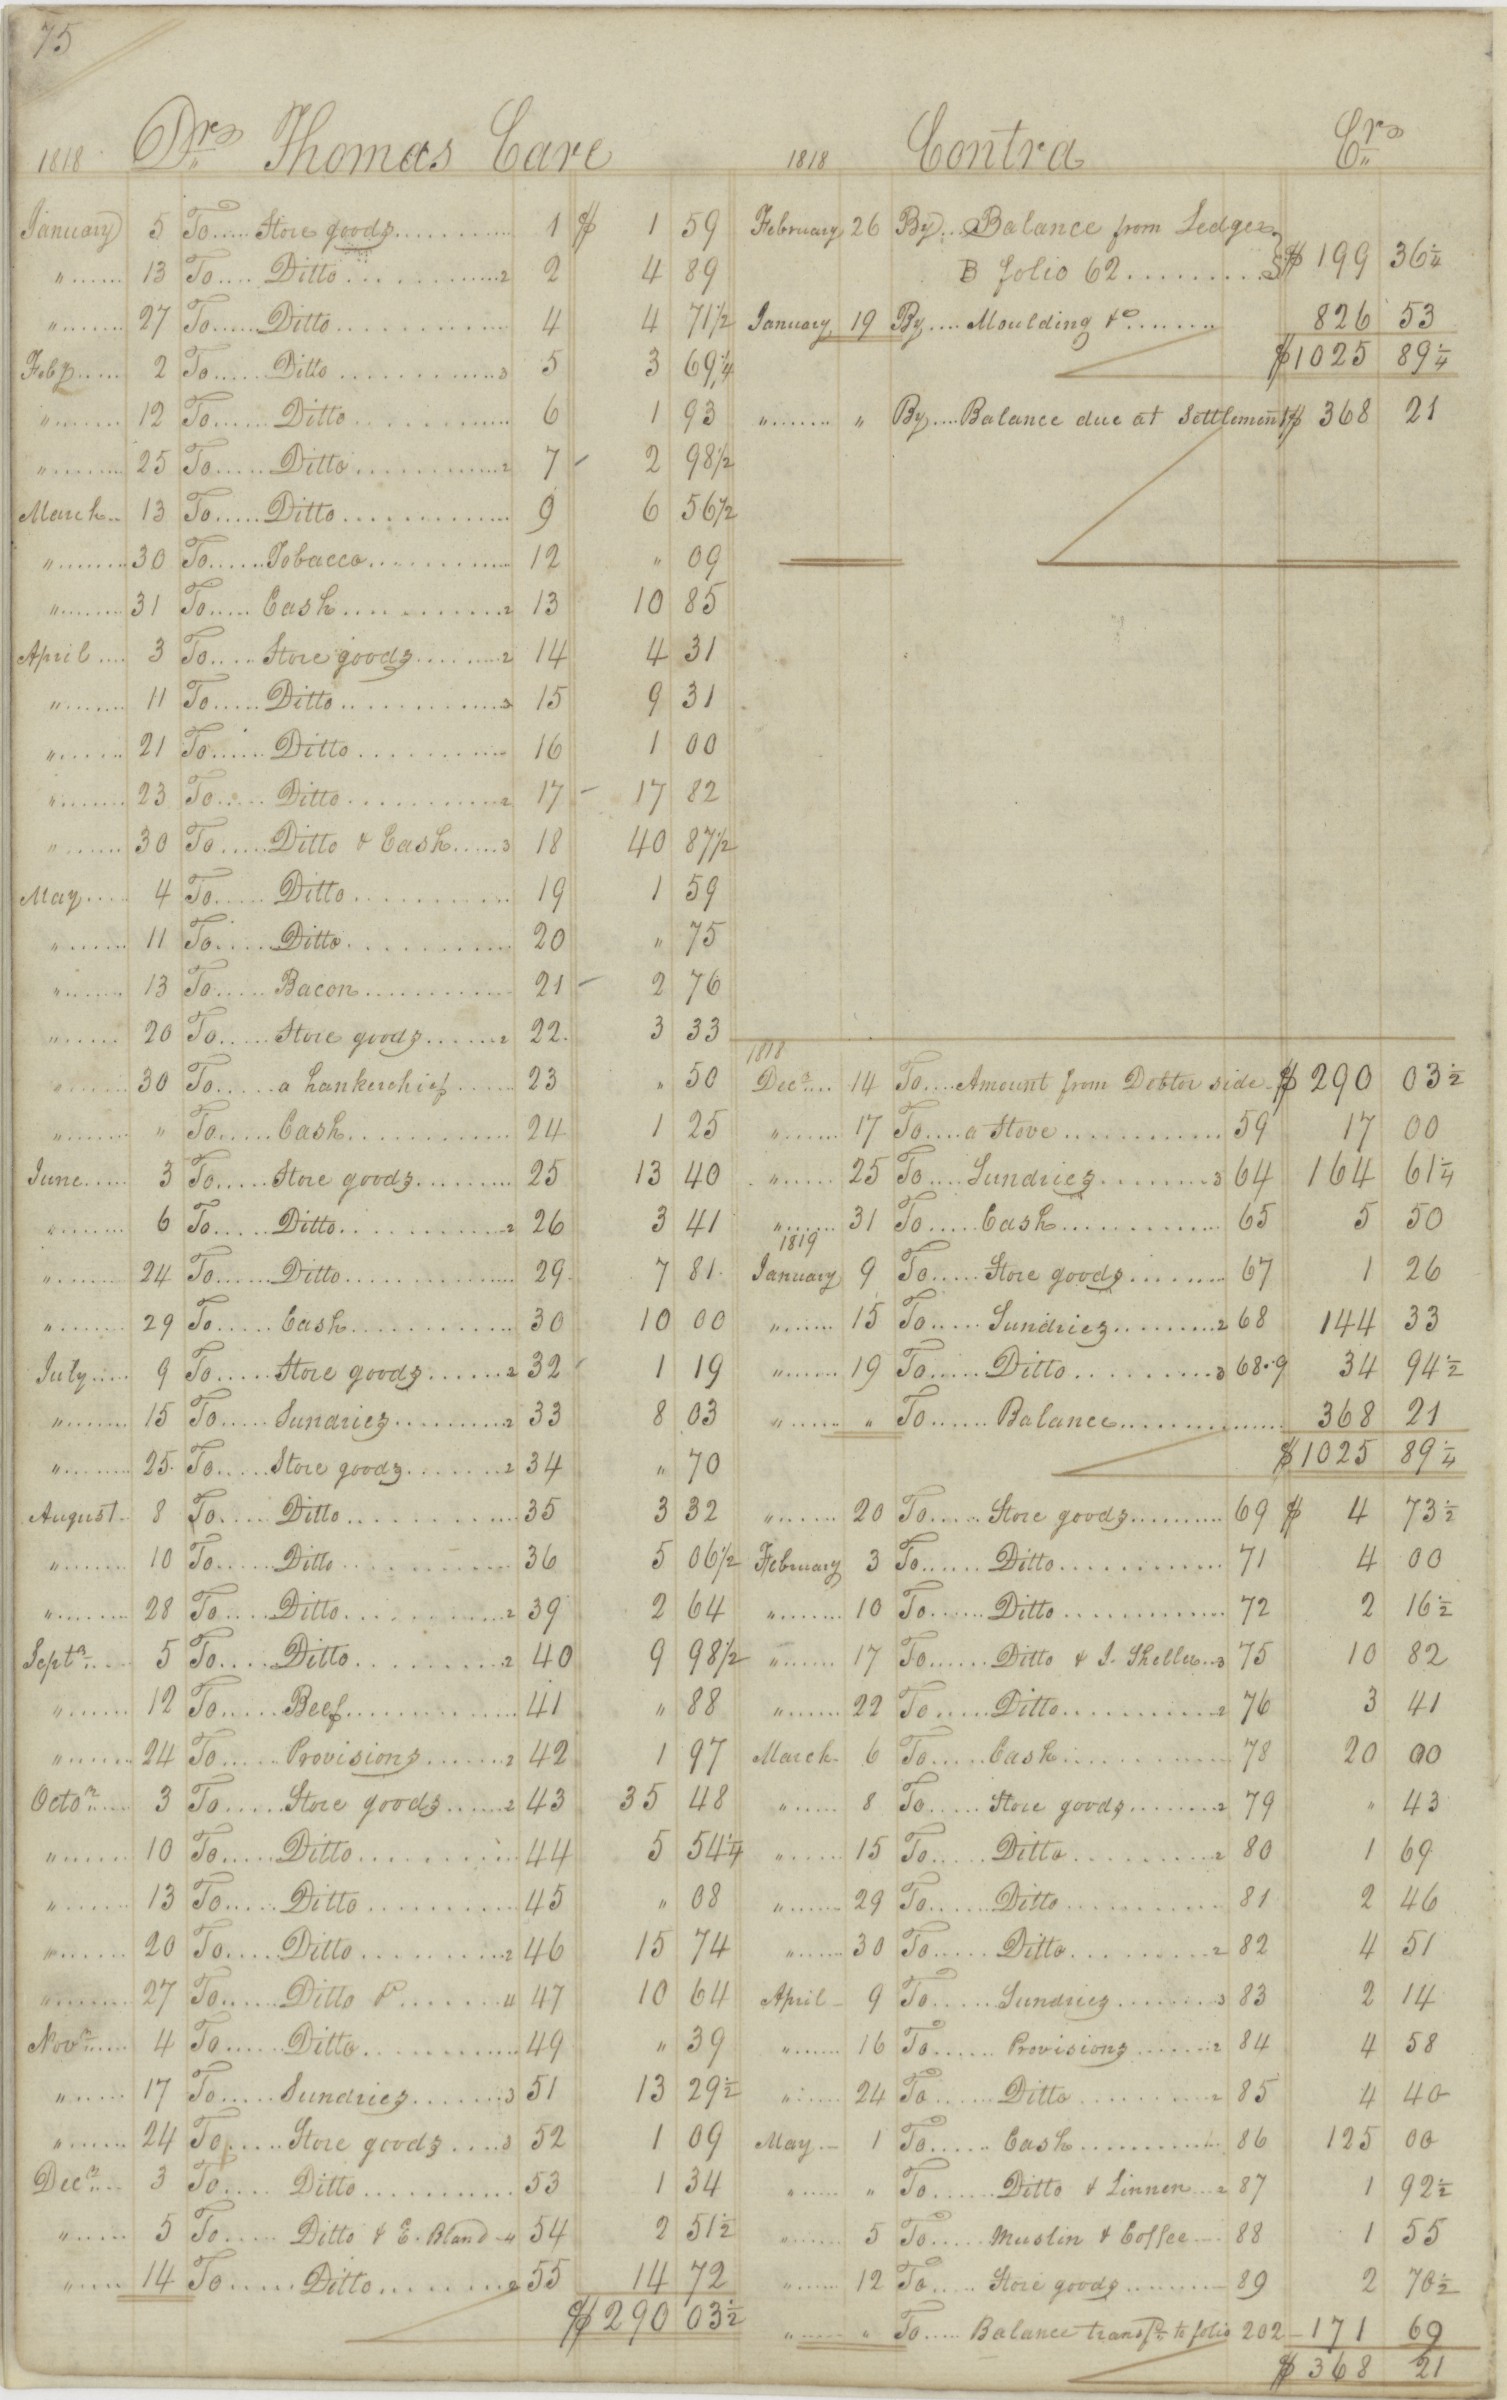 75
1818 Drs Thomas Care
January 5 To..... Store goods............ 1 $ 1 59
"....... 13 To..... Ditto...............2 2 4 89
"........ 27 To...... Ditto.............. 4 4 71 1/2
Feby...... 2 To...... Ditto..............3 5 3 69 1/4
"........ 12 To...... Ditto.............. 6 1 93
"......... 25 To...... Ditto.............2 7 - 2 98 1/2
March.. 13 To...... Ditto............... 9 6 56 1/2
"........ 30 To...... Tobacco............. 12 " 09
"....... 31 To..... Cash..............2 13 10 85
April.... 3 To..... Store goods.........2 14 4 31
"....... 11 To...... Ditto..............3 15 9 31
"...... 21 To...... Ditto............. 16 1 00
"....... 23 To..... Ditto.............2 17 - 17 82
"....... 30 To...... Ditto & Cash.....3 18 40 87 1/2
May.... 4 To..... Ditto............. 19 1 59
"...... 11 To..... Ditto............. 20 " 75
"...... 13 To..... Bacon............ 21 - 2 76
"...... 20 To..... Store goods.......2 22 3 33
"...... 30 To...... a hankerchief...... 23 " 50
"....... " To...... Cash............. 24 1 25
June..... 3 To..... Store goods......... 25 13 40
"........ 6 To...... Ditto.............2 26 3 41
"........ 24 To...... Ditto.............. 29 7 81
"........ 29 To...... Cash.............. 30 10 00
July..... 9 To..... Store goods.......2 32 1 19
"....... 15 To..... Sundries..........2 33 8 03
"........ 25 To..... Store goods........2 34 " 70
August. 8 To..... Ditto............. 35 3 32
"....... 10 To..... Ditto............. 36 5 06 1/2
"........ 28 To..... Ditto............2 39 2 64
Septr.... 5 To..... Ditto............2 40 9 98 1/2
"....... 12 To..... Beef............. 41 " 88
"........ 24 To..... Provisions.......2 42 1 97
Octor.... 3 To..... Store goods......2 43 35 48
"....... 10 To..... Ditto............ 44 5 54 1/4
"....... 13 To..... Ditto............ 45 " 08
"....... 20 To..... Ditto...........2 46 15 74
"........ 27 To..... Ditto P.......4 47 10 64
Novr..... 4 To..... Ditto............ 49 " 39
"...... 17 To..... Sundries........3 51 13 29 1/2
"....... 24 To..... Store goods.....3 52 1 09
Decr.... 3 To..... Ditto............ 53 1 34
"...... 5 To..... Ditto & E. Bland..4 54 2 51 1/2
"..... 14 To...... Ditto.........2 55 14 72
$ 290 03 1/2
1818 Contra Crs
February 26 By.... Balance from Ledger
B folio 62.......... $ 199 36 1/4
January 19 By.... Moulding &c....... 826 53
$1025 89 1/4
"....... " By.... Balance due at Settlement $ 368 21
1818
Decr.... 14 To.... Amount from Debtor side. $ 290 03 1/2
"....... 17 To.... a Stove............. 59 17 00
"....... 25 To.... Sundries.........3 64 164 61 1/4
"....... 31 To..... Cash.............. 65 5 50
1819
January 9 To..... Store goods......... 67 1 26
"...... 15 To..... Sundries..........2 68 144 33
"....... 19 To..... Ditto..........3 68.9 34 94 1/2
"...... " To...... Balance................ 368 21
$1025 89 1/4
"....... 20 To..... Store goods.......... 69 $ 4 73 1/2
February 3 To...... Ditto............. 71 4 00
"........ 10 To...... Ditto............. 72 2 16 1/2
"....... 17 To...... Ditto & J. 3 75 10 82
"....... 22 To..... Ditto............2 76 3 41
March. 6 To..... Cash.............. 78 20 00
"...... 8 To..... Store goods........2 79 " 43
"...... 15 To..... Ditto...........2 80 1 69
"....... 29 To...... Ditto............ 81 2 46
"...... 30 To...... Ditto..........2 82 4 51
April.. 9 To...... Sundries........3 83 2 14
"....... 16 To...... Provisions.......2 84 4 58
"...... 24 To...... Ditto..........2 85 4 40
May.. 1 To...... Cash............ 86 125 00
"..... " To...... Ditto & Linnen...2 87 1 92 1/2
"...... 5 To..... Muslin & Coffee.... 88 1 55
"...... 12 To..... Store goods......... 89 2 70 1/2
"...... " To..... Balance transfr. to folio 202 171 69
$ 368 21